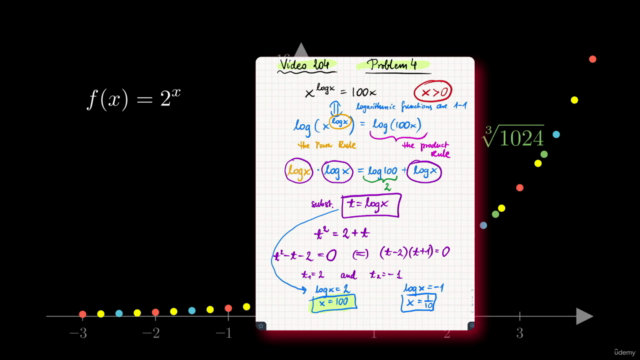 Video 204 Problem 4
x^{log x} = 100x x>0
logarithmic functions are 1-1
log(x^{log x}) = log(100x)
the Power Rule the product Rule
log x · log x = log 100 + log x
2
subst. t = log x
t² = 2 + t
t² - t - 2 = 0 (=) (t-2)(t+1) = 0
t₁ = 2 and t₂ = -1
log x = 2 log x = -1
x = 100 x = 1/10
f(x) = 2^x
∛1024
−3 −2 −1 1 2 3
ûdemy